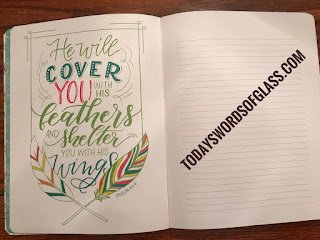 He will
COVER
YOU WITH
HIS
feathers
AND shelter
YOU WITH HIS
Wings
TODAYSWORDSOFGLASS.COM